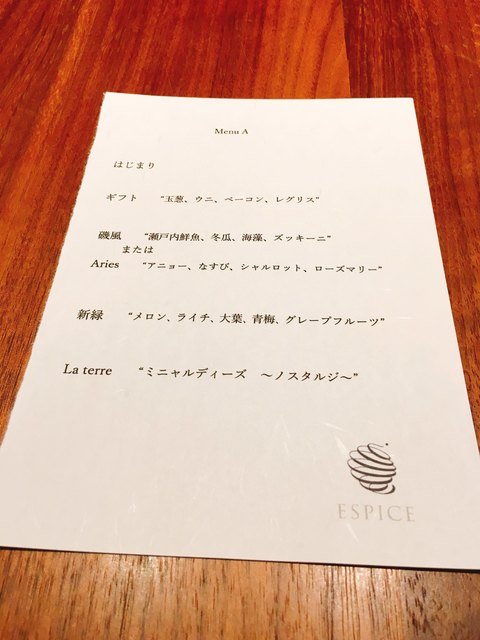 Menu A
はじまり
ギフト “玉葱、ウニ、ベーコン、レグリス”
磯風 “瀬戸内鮮魚、冬瓜、海藻、ズッキーニ”
または
Aries “アニョー、なすび、シャルロット、ローズマリー”
新緑 “メロン、ライチ、大葉、青梅、グレープフルーツ”
La terre “ミニャルディーズ ～ノスタルジ～”
ESPICE